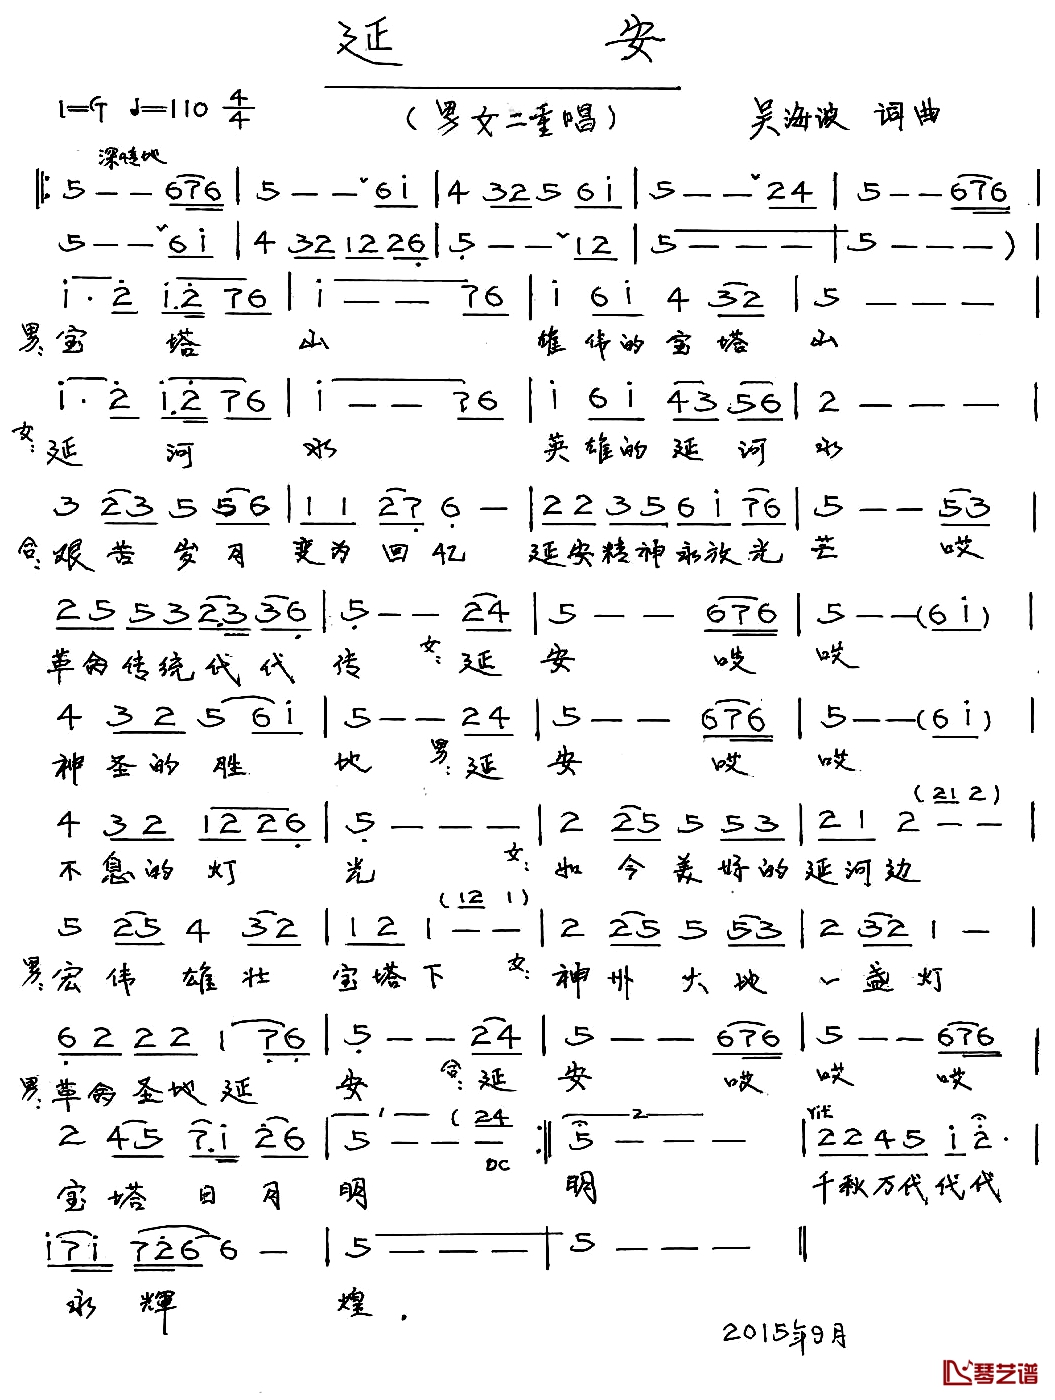 延 安
1=G ♩=110 4/4 (男女二重唱) 吴海波 词曲
深情地
‖: 5 - - 676 | 5 - - ˇ6i | 4 325 6i | 5 - - ˇ24 | 5 - - 676 |
5 - - ˇ6i | 4 32 12 26 | 5 - - ˇ12 | 5 - - - | 5 - - - )
i· 2 i.2 76 | i - - 76 | i 6i 4 32 | 5 - - - |
男: 宝 塔 山 雄伟的宝塔山
i· 2 i.2 76 | i - - 76 | i 6i 43 56 | 2 - - - |
女: 延 河 水 英雄的延河水
3 23 5 56 | 11 27 6 - | 22 35 6i 76 | 5 - - 53 |
合: 艰苦岁月变为回忆 延安精神永放光芒 哎
25 53 2.3 36 | 5 - - 24 | 5 - - 676 | 5 - - (6i) |
革命传统代代传 女: 延安 哎 哎
4 32 5 6i | 5 - - 24 | 5 - - 676 | 5 - - (6i) |
神圣的胜地 男: 延安 哎 哎
(21 2)
4 32 12 26 | 5 - - - | 2 25 5 53 | 21 2 - - |
不息的灯光 女: 如今美好的延河边
(12 1)
5 25 4 32 | 12 1 - - | 2 25 5 53 | 2 32 1 - |
男: 宏伟雄壮宝塔下 女: 神州大地一盏灯
62 22 1 76 | 5 - - 24 | 5 - - 676 | 5 - - 676 |
男: 革命圣地延安 合: 延安 哎 哎 哎
2 45 7.i 26 | 1 5 - - - (24 DC :‖ 2 5 - - - | rit 22 45 i 2· |
宝塔日月明 明 千秋万代代代
i7i 7266 - | 5 - - - | 5 - - - ‖
永辉 煌.
2015年9月
琴艺谱